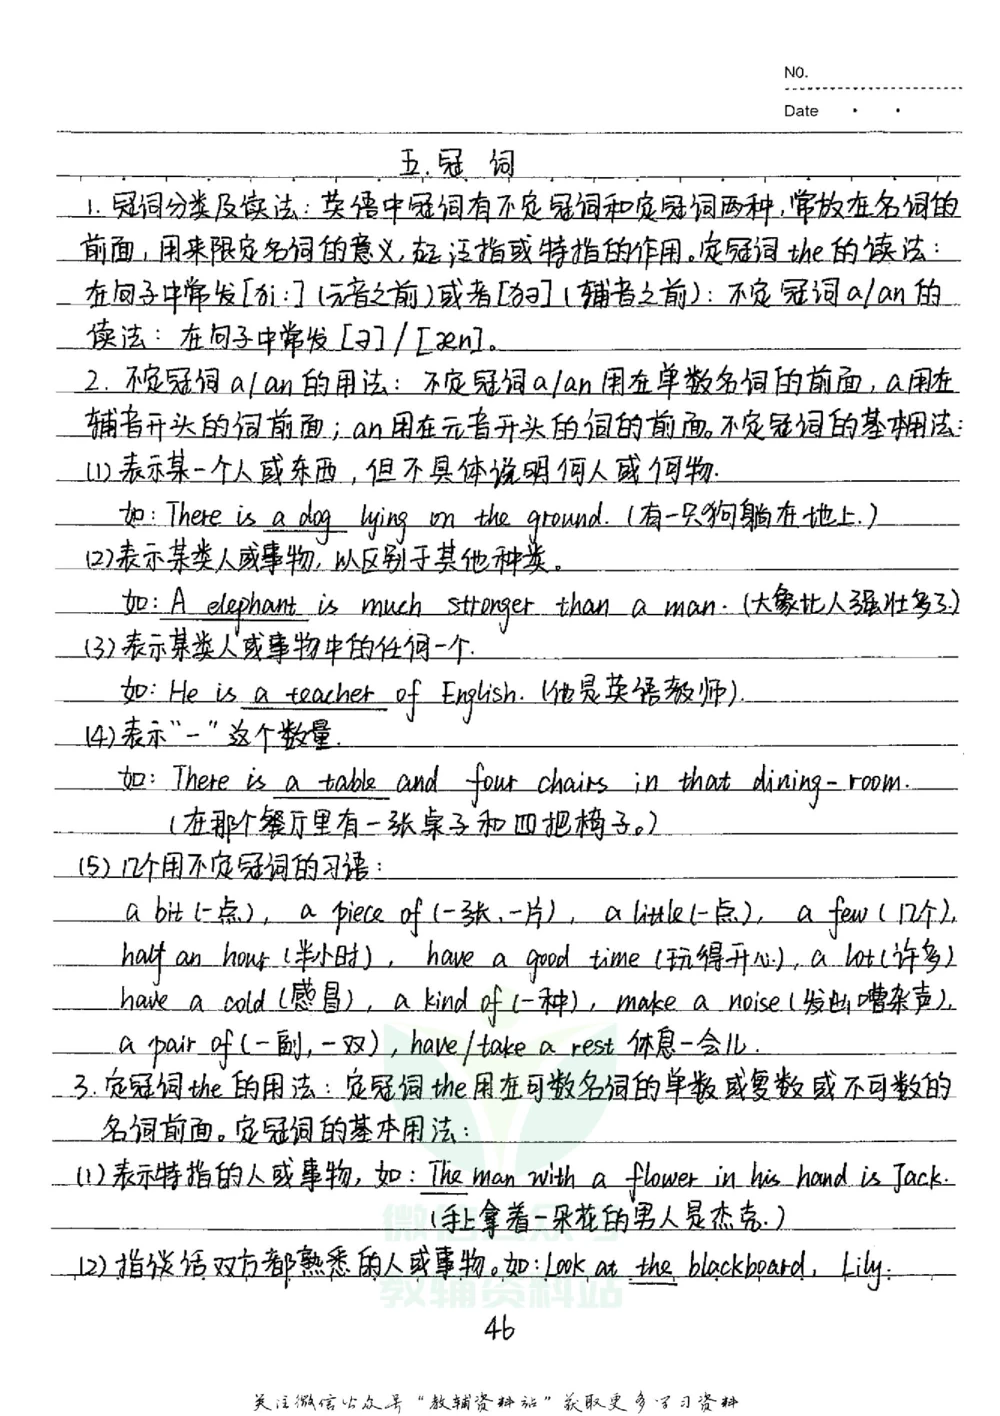 NO.
Date
五.冠 词
1. 冠词分类及读法: 英语中冠词有不定冠词和定冠词两种,常放在名词的
前面,用来限定名词的意义,起泛指或特指的作用。定冠词the的读法:
在句子中常发[ði:](元音之前)或者[ðə](辅音之前); 不定冠词a/an的
读法: 在句子中常发[ə]/[æn]。
2. 不定冠词a/an的用法: 不定冠词a/an用在单数名词的前面,a用在
辅音开头的词前面;an用在元音开头的词的前面。不定冠词的基本用法:
(1)表示某一个人或东西,但不具体说明何人或何物.
如: There is a dog lying on the ground. (有一只狗躺在地上.)
(2)表示某类人或事物,以区别于其他种类。
如: A elephant is much stronger than a man. (大象比人强壮多了)
(3)表示某类人或事物中的任何一个.
如: He is a teacher of English. (他是英语教师).
(4)表示"一"这个数量.
如: There is a table and four chairs in that dining-room.
(在那个餐厅里有一张桌子和四把椅子。)
(5)几个用不定冠词的习语:
a bit(一点), a piece of(一张、一片), a little(一点), a few(几个),
half an hour(半小时), have a good time(玩得开心), a lot(许多)
have a cold(感冒), a kind of(一种), make a noise(发出嘈杂声),
a pair of(一副,一双), have/take a rest 休息一会儿.
3. 定冠词the的用法: 定冠词the用在可数名词的单数或复数或不可数的
名词前面。定冠词的基本用法:
(1)表示特指的人或事物,如: The man with a flower in his hand is Jack.
(手上拿着一朵花的男人是杰克.)
(2)指谈话双方都熟悉的人或事物。如: Look at the blackboard, Lily.
微信公众号
教辅资料站
46
关注微信公众号“教辅资料站”获取更多学习资料